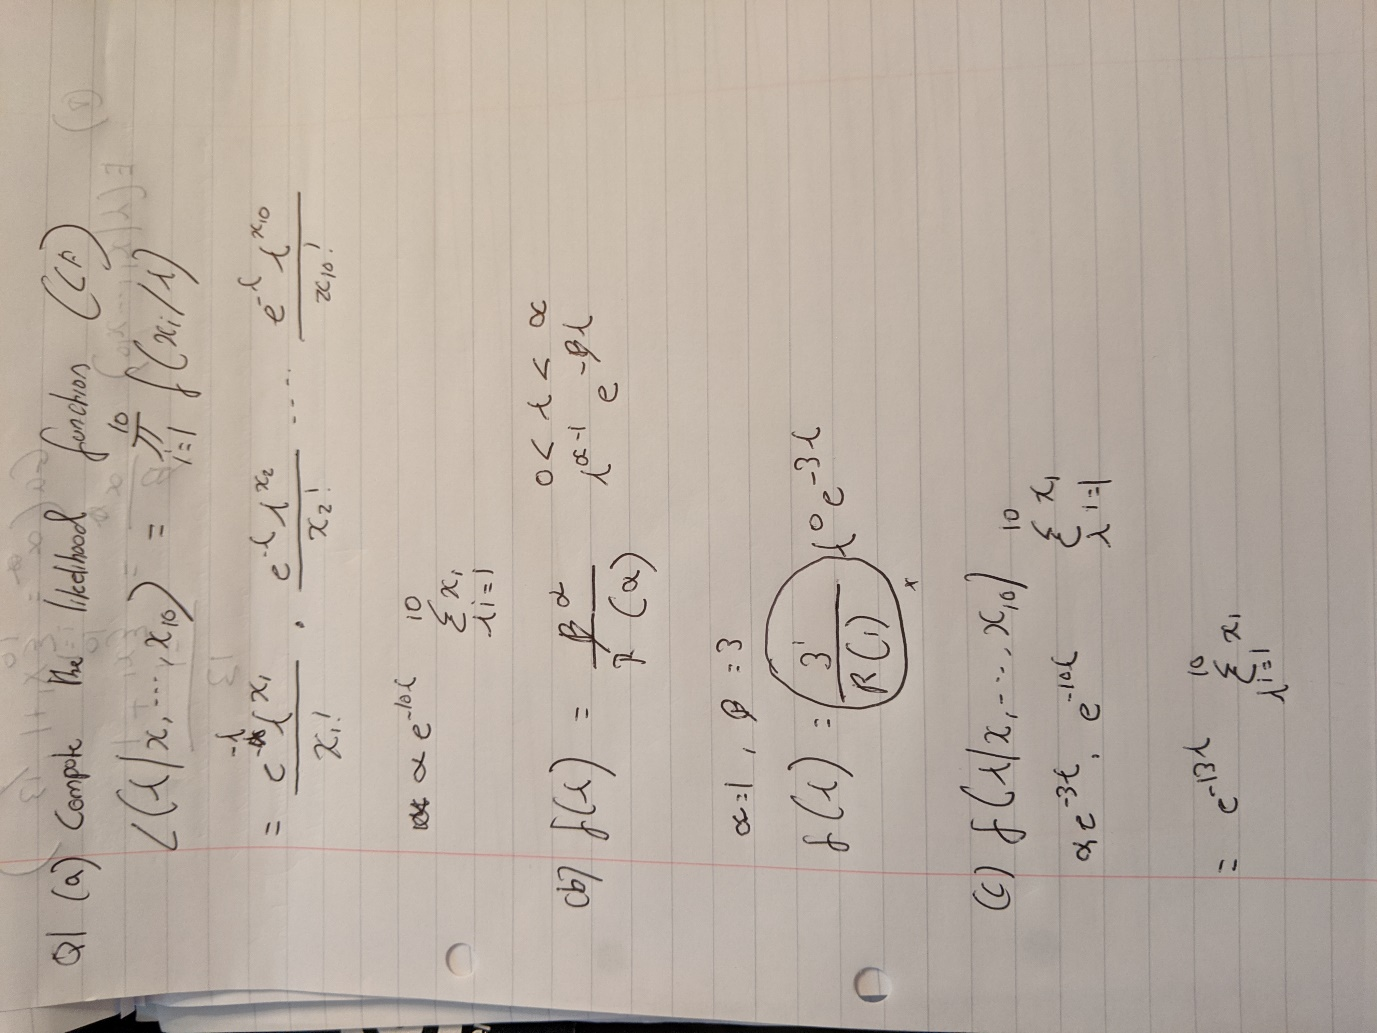 Q1 (a) Compute the likelihood function (LF)
L(λ/x₁, ..., x₁₀) = π¹⁰ᵢ₌₁ f(xᵢ/λ)
= e^-λ λ^x₁ / x₁! . e^-λ λ^x₂ / x₂! .... e^-λ λ^x₁₀ / x₁₀!
∝ e^-10λ λ^Σ¹⁰ᵢ₌₁ xᵢ
(b) f(λ) = β^α / Γ(α) λ^α-1 e^-βλ 0 < λ < ∝
α=1, β=3
f(λ) = 3¹ / Γ(1) λ⁰ e^-3λ
(c) f(λ/x₁, ..., x₁₀)
∝ e^-3λ . e^-10λ λ^Σ¹⁰ᵢ₌₁ xᵢ
= e^-13λ λ^Σ¹⁰ᵢ₌₁ xᵢ